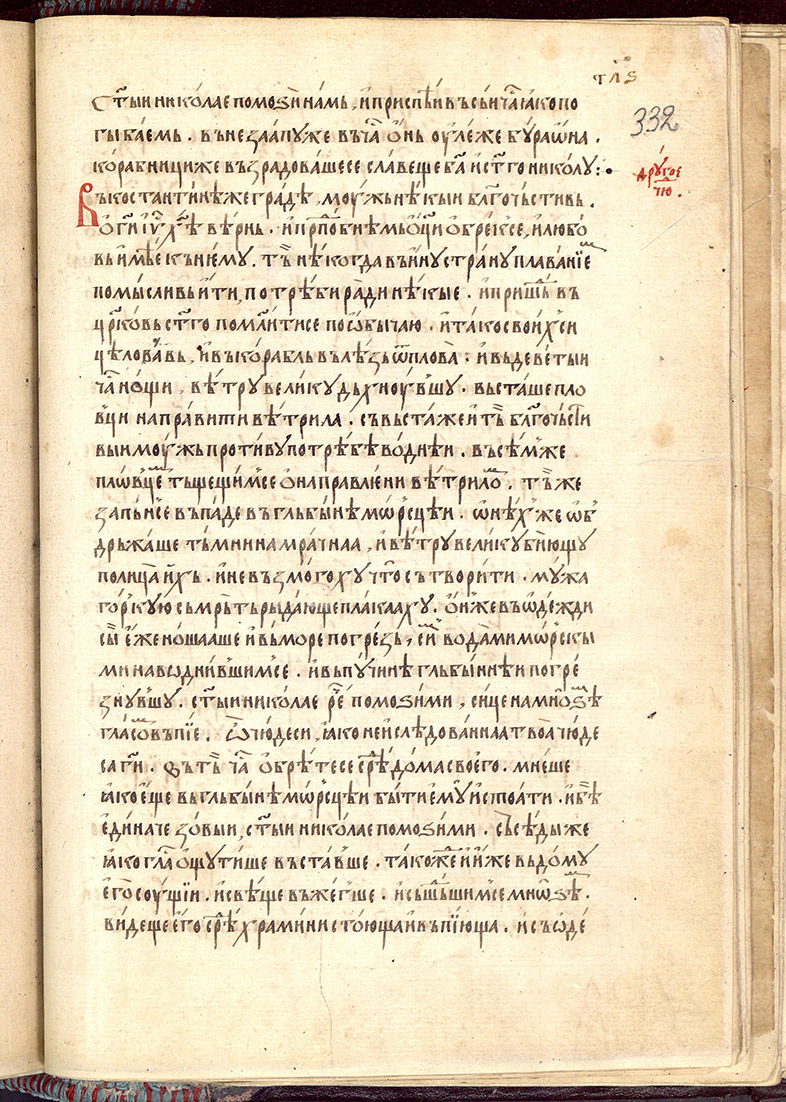 тл҃ѕ
332
ст҃ыи николае помоѕи намь, иприспѣи въ сьи ча҃ ꙗко по
гыбаемь. вънезаапꙋ же въ ча҃ онь ѹлѣже бꙋра ѡна.
корабници же възрадовашесе славеще ба҃ и ст҃го николꙋ:•
дрꙋгое
чю҃.
Въ костантїнѣже градѣ, моужь нѣкыи бл҃гочьстивь.
о ги҃ іѵ҃ хс҃ѣ вѣрнь. и прпⷣбнѣмь оц҃и обрекⷭсе, и любо
вь имѣе къ немꙋ. тъ нѣкогда въ инꙋ странꙋ плаванїе
помысливь ити, потрѣби ради нѣкые. и пришⷣь въ
цр҃ковь ст҃го помл҃итисе по ѡбычаю. и тако своихⷭи
цѣловавь, и въ корабль вълѣзь ѿплова: и въ деветыи
ча҃ нощи, вѣтрꙋ великꙋ дьхноувⷲꙋ. въсташе пло
вци направити вѣтрила. съвъста же и тъ бл҃гочьсти
выи моужь противꙋ потрѣбѣ воднѣи. въсѣмже
плѡвцемь тьщещимсе о направлюени вѣтриломь. тъ же
запьнсе въпаде въ гльбынѣ мѡрсцѣи. ѡнѣхже ѡб
дрьжаше тьмнина мрачнаа, и вѣтрꙋ великꙋ бїющꙋ
по лицꙋ ихь. и не възмогохꙋ что сътворити. мꙋжа
горкꙋю сьмрьть рыдающе плакаахꙋ. онже въ ѡдежди
сы еже ношааше и въ море погрѣзь, ємꙋ водами мѡрскы
ми наводнившимсе. и въ пꙋчинѣ гльбыннѣи погрѣ
знꙋвшꙋ. ст҃ыи николае реⷱ помоѕи ми, сице на мноѕѣ
гласомь въпїе. ѽ чюдеси, ꙗко неислѣдованнаа твоа чюде
са ги҃. въ тъ ча҃ обрѣтесе срѣⷣ дома своего. мнеше
ꙗко еще въ гльбынѣ мѡрсцѣи быти емꙋ и стоати. и бѣ
единаче зовыи, ст҃ыи николае помоѕи ми. съсѣды же
ꙗко гла҃ ощꙋтише въставше. такожⷣе и иже въ домꙋ
его соущїи. и свѣще въжегше. и сьшⷣьшимсе мнѡѕѣмь.
видеше его срѣⷣ храмини стоюща и въпїюща. и съ ѡде